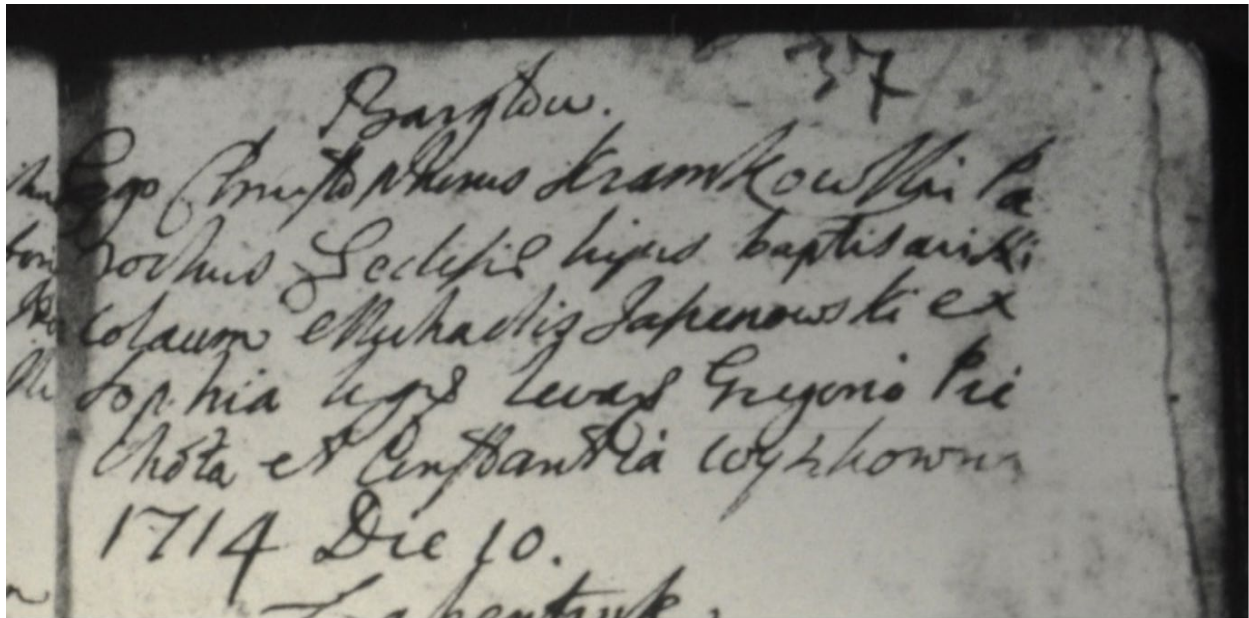 37
Bargłow.
Ego Christophorus Kramkowski Pa
rochus Ecclesie huius baptisavi Ni
colaum Michaelis Japenowski ex
Sophia legs levans Gregorio Pie
chota et Constantia
1714 Die 10.